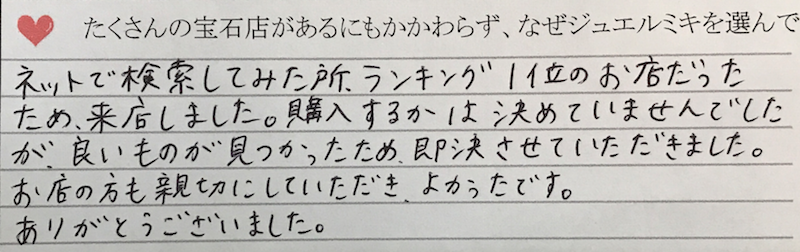 たくさんの宝石店があるにもかかわらず、なぜジュエルミキを選んで
ネットで検索してみた所、ランキング1位のお店だった
ため、来店しました。購入するかは決めていませんでした
が、良いものが見つかったため、即決させていただきました。
お店の方も親切にしていただき、よかったです。
ありがとうございました。